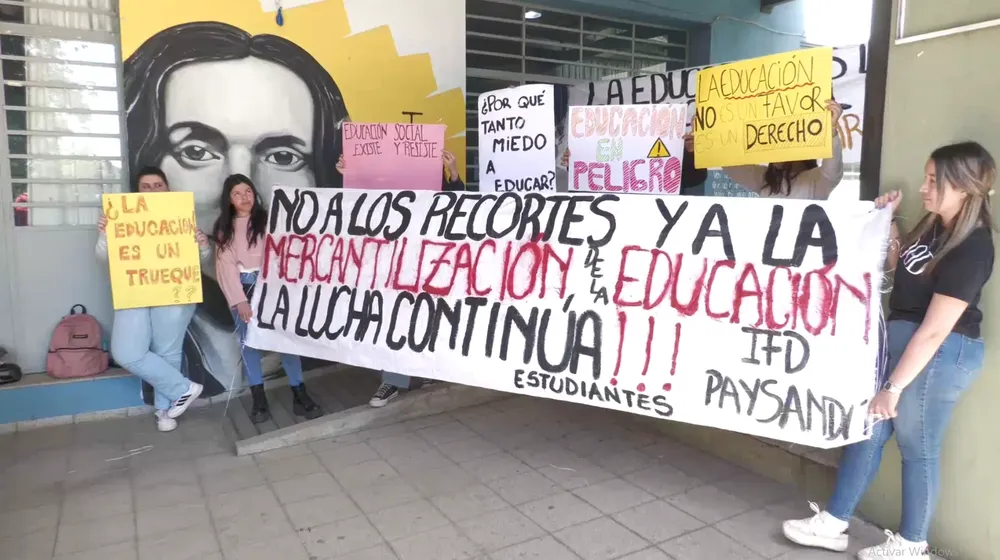 ¿LA
EDUCACIÓN
ES UN
TRUEQUE
??
EDUCACIÓN SOCIAL
EXISTE Y RESISTE
¿POR QUÉ
TANTO
MiEDO
A
EDUCAR?
EDUCACIÓN
EN
PELIGRO
LA EDUCACIÓN
NO ES UN FAVOR
ES UN DERECHO
LA EDUCA
NO A LOS RECORTES Y A LA
MERCANTILIZACIÓN DE LA EDUCACIÓN
LA LUCHA CONTINÚA!!!
ESTUDIANTES
IFD
PAYSANDÚ
Activar Window